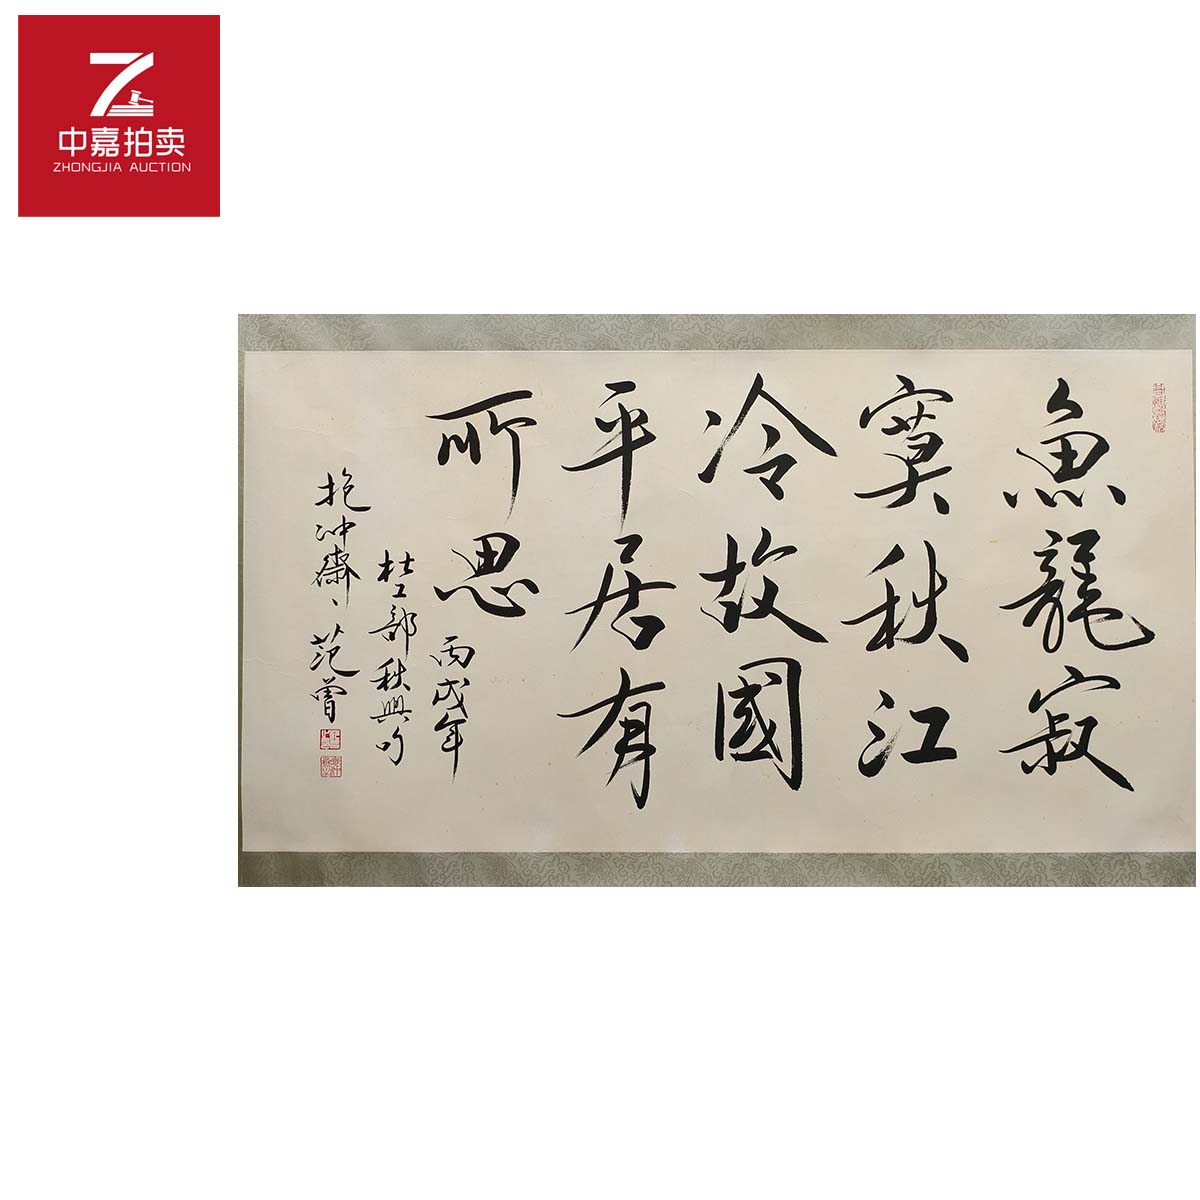 中嘉拍卖
ZHONGJIA AUCTION
魚龍寂
寞秋江
冷故國
平居有
所思
丙戌年
杜工部秋興句
抱冲齋、范曾